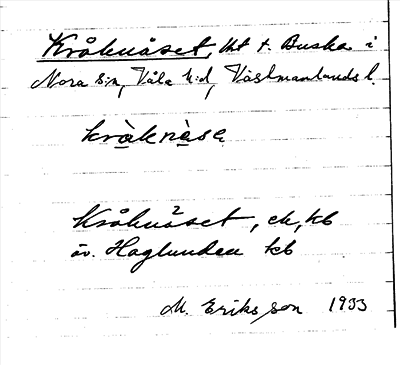 Kråknäset, tht t. Buska i
Nora s:n, Våla h:d, Västmanlands l.
kråknäse
Kråknäset, ek, kb
äv. Haglunden kb
M. Eriksson 1933